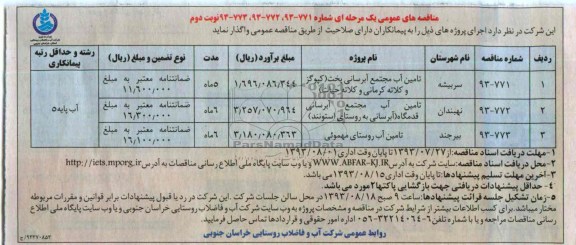 مناقصه های عمومی یک مرحله ای شماره ۷۷۱-۹۳، ۷۷۲-۹۳، ۷۷۳-۹۳نوبت دوم
این شرکت در نظر دارد اجرای پروژه های ذیل را به پیمانکاران دارای صلاحیت از طریق مناقصه عمومی واگذار نماید
ردیف شماره مناقصه نام شهرستان نام پروژه مبلغ برآورد (ریال) مدت نوع تضمین و مبلغ (ریال) رشته و حداقل رتبه پیمانکاری
۱ ۹۳-۷۷۱ سربیشه تامین آب مجتمع آبرسانی پخت(کبوگز و کلاته کرمانی و کلاته ۱,۶۹۶,۰۸۶,۳۴۴ ۵ماه ضمانتنامه معتبر به مبلغ ۱۱,۶۰۰,۰۰۰ آب پایه۵
۲ ۹۳-۷۷۲ نهبندان تامین آب مجتمع آبرسانی قدمگاه(آبرسانی به روستای استونند) ۳,۲۵۷,۰۷۰,۹۶۴ ۶ماه ضمانتنامه معتبر به مبلغ ۱۶,۳۰۰,۰۰۰
۳ ۹۳-۷۷۳ بیرجند تامین آب روستای مهموئی ۳,۱۸۰,۰۸۰,۳۶۳ ۶ماه ضمانتنامه معتبر به مبلغ ۱۶,۱۰۰,۰۰۰
۱-مهلت دریافت اسناد مناقصه:از۱۳۹۳/۰۷/۲۷ تا پایان وقت اداری ۱۳۹۳/۰۸/۰۱
۲-محل دریافت اسناد مناقصه:سایت شرکت به آدرس WWW.ABFAR-KJ.IR و یا وب سایت پایگاه ملی اطلاع رسانی مناقصات به آدرس http://iets.mporg.ir
۳-آخرین مهلت تسلیم پیشنهادها:تا پایان وقت اداری ۱۳۹۳/۰۸/۱۵ می باشد.
۴-حداقل پیشنهادات دریافتی جهت بازگشایی پاکتها ۲مورد می باشد.
۵-زمان تشکیل جلسه قرائت پیشنهادها:ساعت ۹ صبح ۱۳۹۳/۰۸/۱۸ در محل سالن جلسات شرکت. این شرکت در رد یا قبول پیشنهادات برابر قوانین و مقررات مربوطه
مختار میباشد.برای کسب اطلاعات بیشتر از شرایط شرکت در مناقصه و مشخصات پروژه به وب سایت شرکت آب و فاضلاب روستایی خراسان جنوبی و یا وب سایت پایگاه ملی اطلاع
رسانی مناقصات مراجعه و یا با شماره تلفن۶-۳۲۲۱۴۰۶۴-۰۵۶ اداره امور حقوقی و قراردادها تماس حاصل فرمایید.
روابط عمومی شرکت آب و فاضلاب روستایی خراسان جنوبی
ParsNamadData